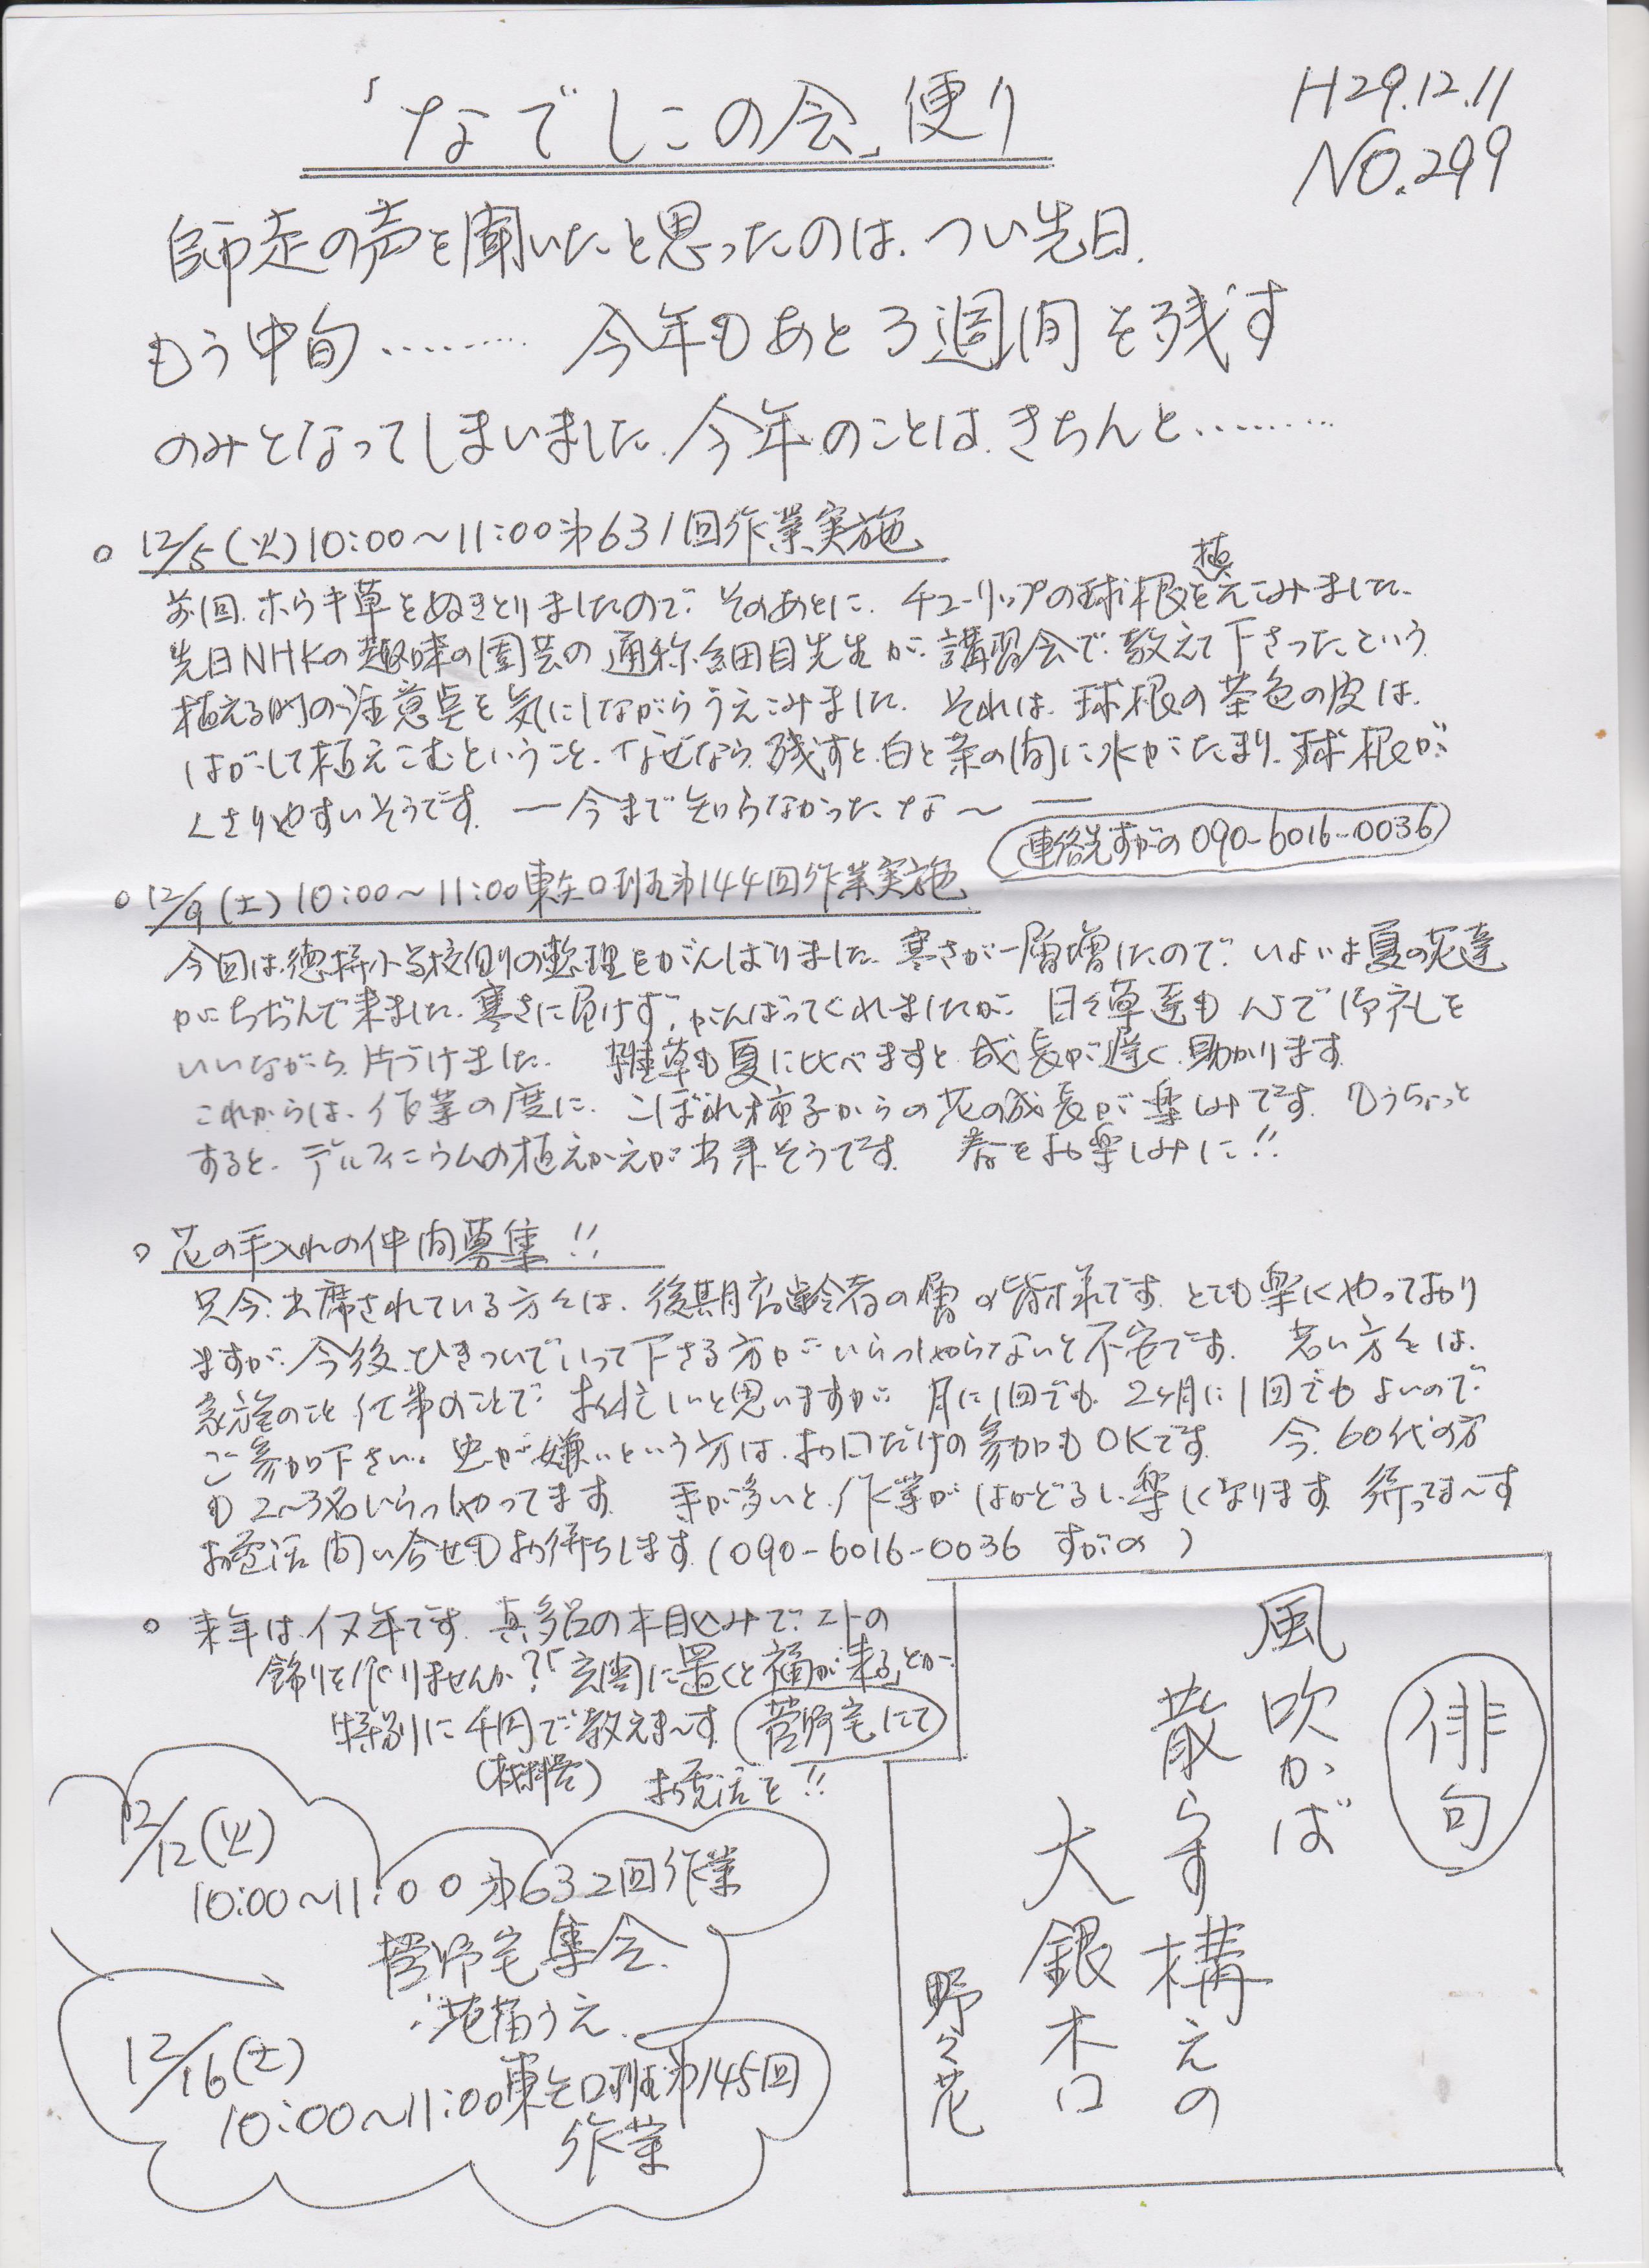 「なでしこの会」便り
H29.12.11
NO.299
師走の声を聞いたと思ったのは、つい先日、
もう中旬……… 今年もあと3週間を残す
のみとなってしまいました。今年のことは、きちんと………
○ 12/5(火)10:00～11:00第631回作業実施
前回、ホウキ草をぬきとりましたので、そのあとに、チューリップの球根を植えこみました。
先日NHKの趣味の園芸の通称、細目先生が、講習会で教えて下さったという
植える時の注意点を気にしながらうえこみました。それは、球根の茶色の皮は、
はがして植えこむということ、なぜなら、残すと、白と茶の間に水がたまり、球根が
くさりやすいそうです。 ー今まで知らなかったな～ー
連絡先すがの090-6016-0036
○ 12/9(土)10:00～11:00東矢口班第144回作業実施
今回は、徳持小学校側の整理をがんばりました。寒さが一層増したので、いよいよ夏の花達
がちぢんで来ました。寒さに負けず、がんばってくれましたが、日々草達も 心で御礼を
いいながら、片づけました。 雑草も夏に比べますと、成長が遅く、助かります。
これからは、作業の度に、こぼれ種子からの花の成長が楽しみです。もうちょっと
すると、デルフィニウムの植えかえが出来そうです。 春をお楽しみに!!
○ 花の手入れの仲間募集!!
只今、出席されている方々は、後期高齢者の層の皆様です。とても楽しくやっており
ますが、今後、ひきついでいって下さる方がいらっしゃらないと不安です。 若い方々は、
家族のこと、仕事のことで、お忙しいと思いますが、月に1回でも、2ヶ月に1回でもよいので、
ご参加下さい。虫が嫌いという方は、お口だけの参加もOKです。 今、60代の方
も2～3名いらっしゃってます。 手が多いと、作業がはかどるし、楽しくなります。待ってま～す
お電話問い合せもお待ちします。(090-6016-0036 すがの)
○ 来年は、イヌ年です。真多呂の木目込みで、エトの
飾りを作りませんか?「玄関に置くと福が来る」とか、
特別に千円で教えま～す。 菅野宅にて
(材料費) お電話を!!
12/12(火)
10:00～11:00 第632回作業
菅野宅集合、
花苗うえ、
12/16(土)
10:00～11:00東矢口班第145回
作業
俳句
風吹かば
散らす構えの
大銀木口
野々花